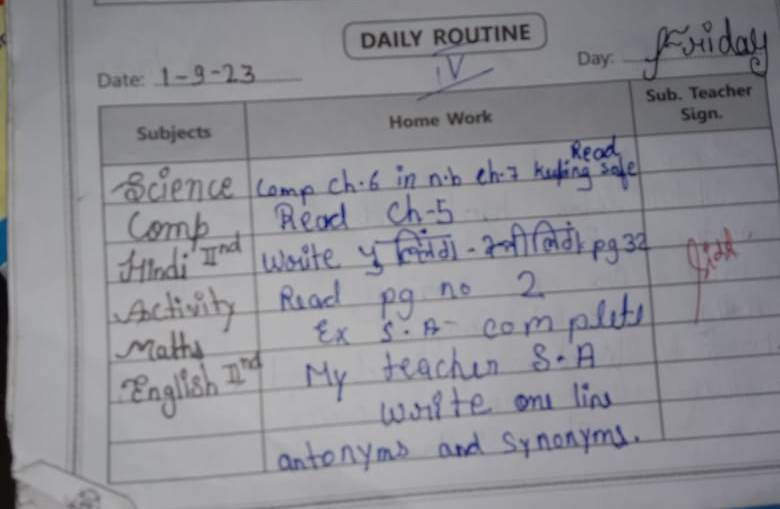 DAILY ROUTINE
IV
Date: 1-9-23
Day: Friday
Subjects Home Work Sub. Teacher Sign.
Read
Science Comp Ch.6 in n.b ch.7 safe
Comp Read Ch-5
Hindi IInd Write पु - pg 32
Activity Read pg no 2
Maths Ex S.A- complete
English IInd My teacher S.A
write one line
antonyms and synonyms.